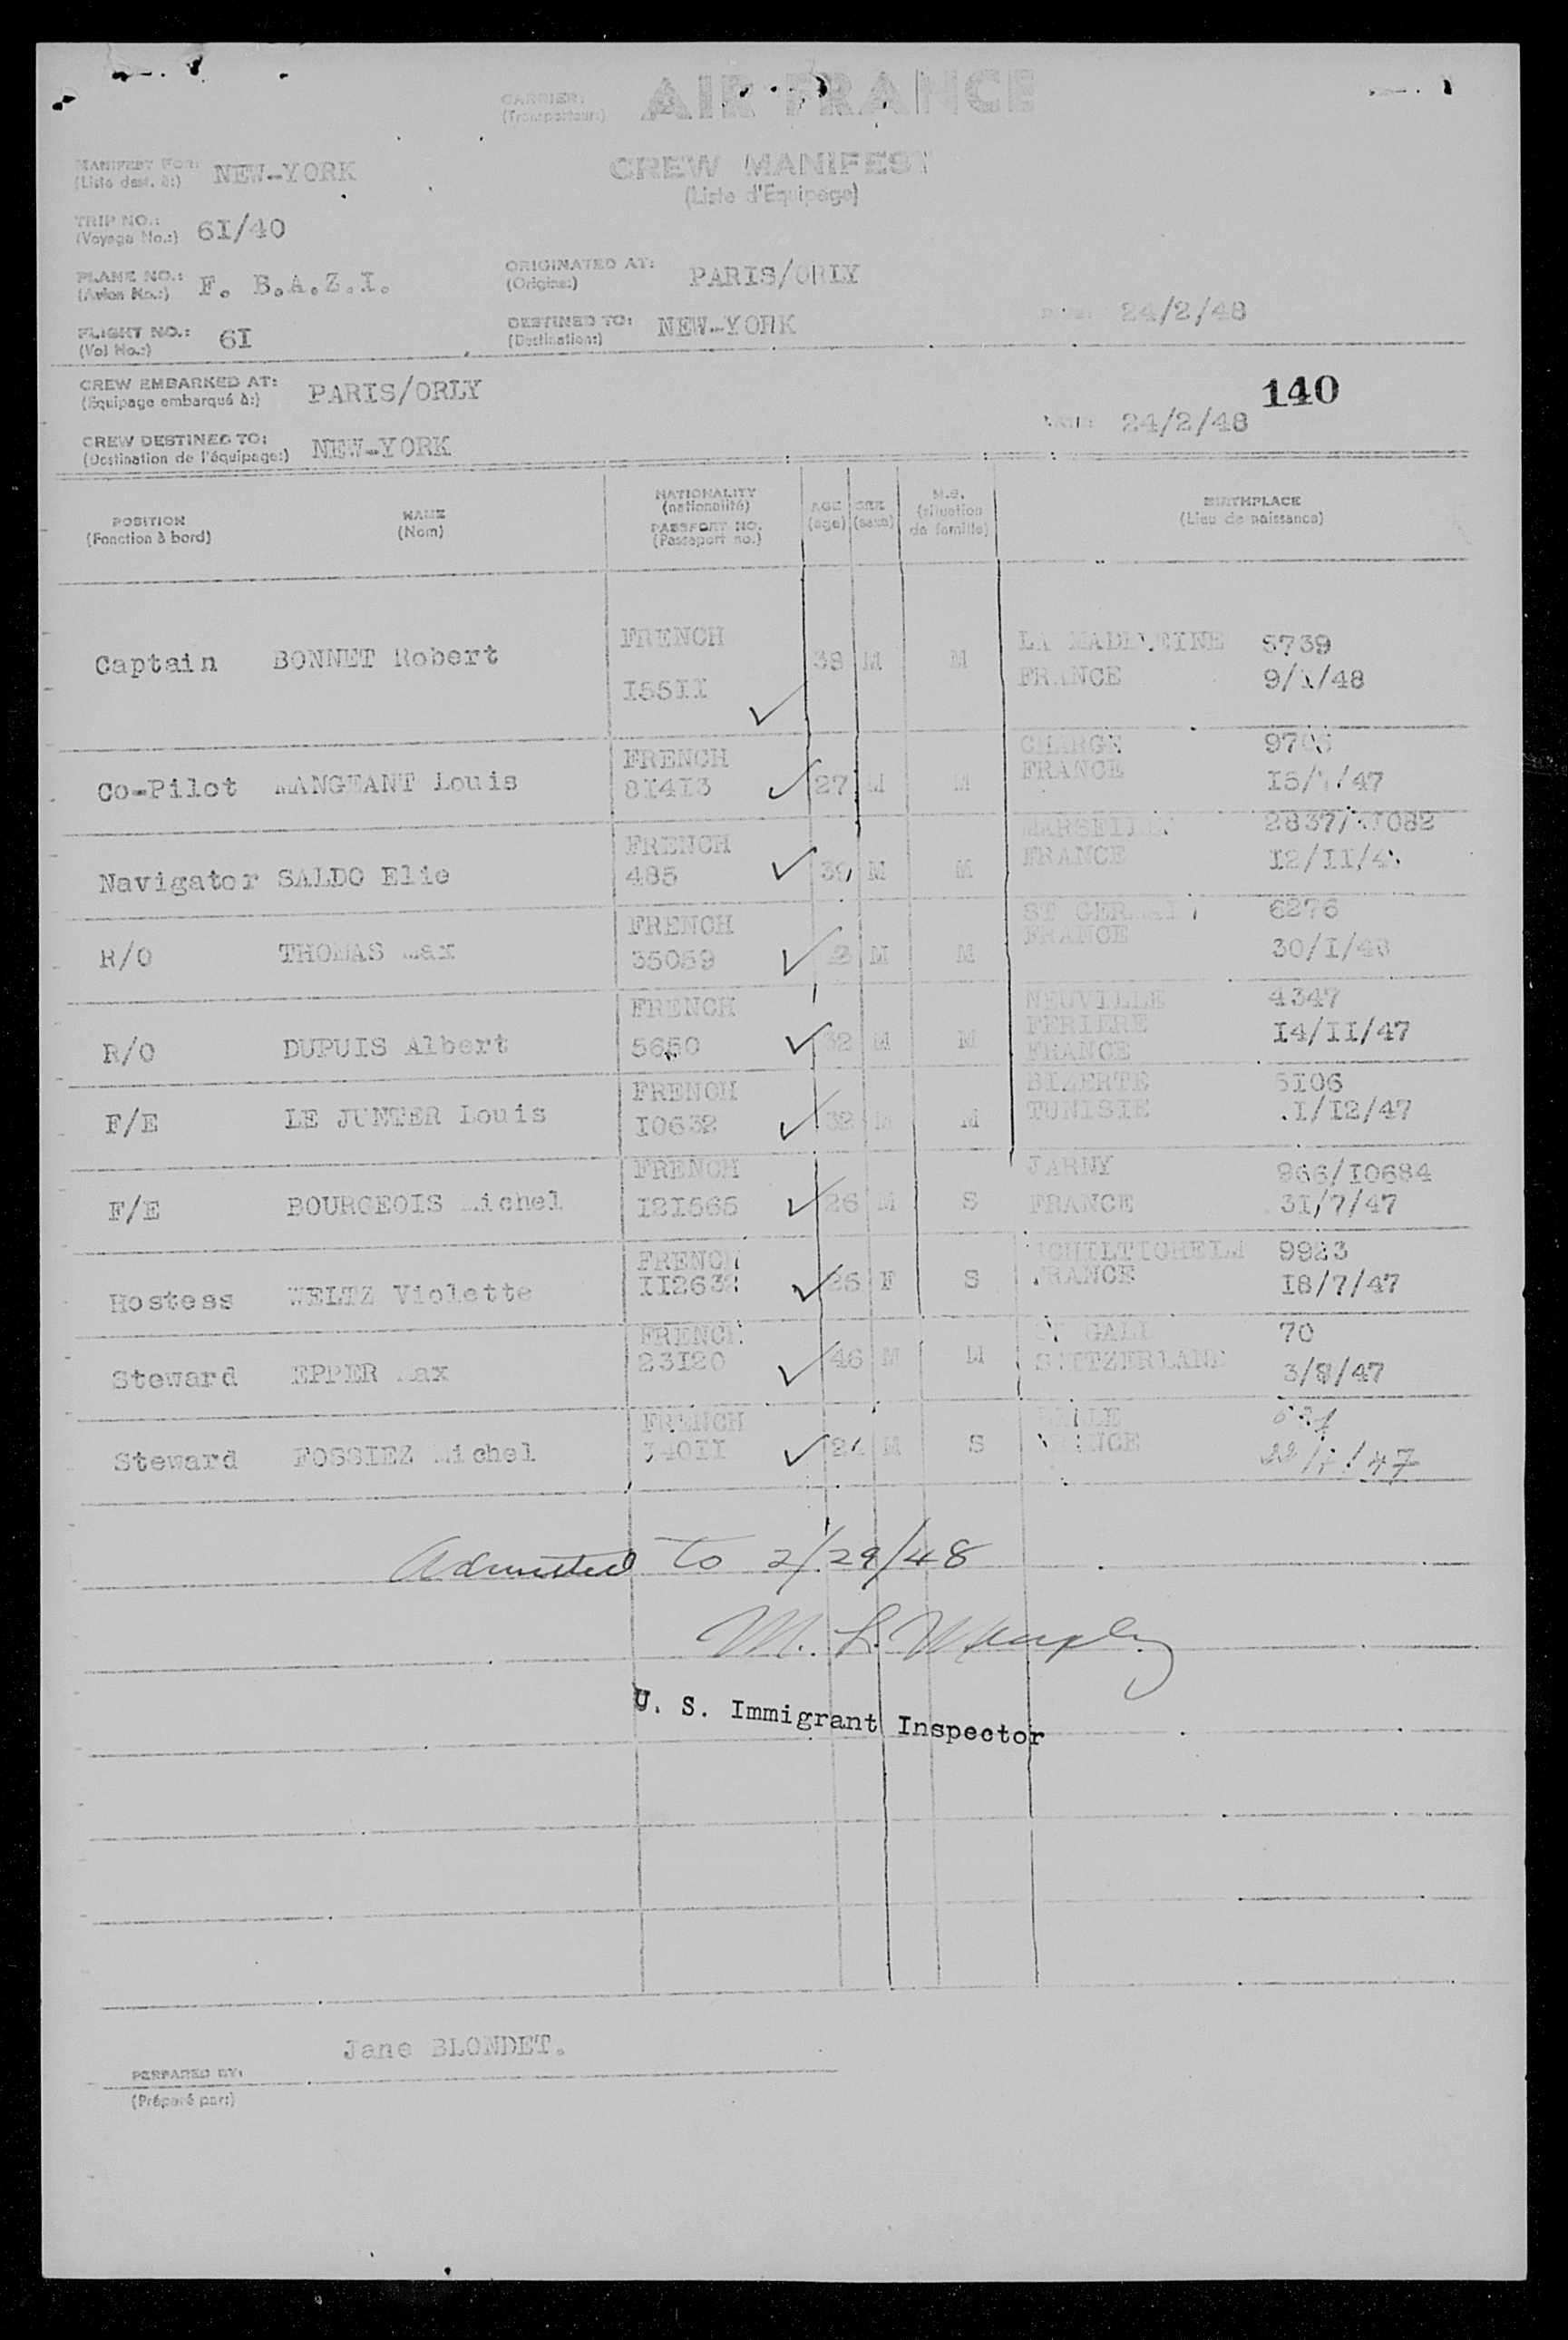 CARRIER: AIR FRANCE
(Transporteur:)
MANIFEST FOR: NEW-YORK
(Liste dest. à:)
CREW MANIFEST
(Liste d'Equipage)
TRIP NO.: 6I/40
(Voyage No.:)
PLANE NO.: F. B.A.Z.I.
(Avion No.:)
ORIGINATED AT: PARIS/ORLY
(Origine:)
24/2/48
FLIGHT NO.: 6I
(Vol No.:)
DESTINED TO: NEW-YORK
(Destination:)
CREW EMBARKED AT: PARIS/ORLY
(Equipage embarqué à:)
140
24/2/48
CREW DESTINED TO: NEW-YORK
(Destination de l'équipage:)
POSITION
(Fonction à bord)
NAME
(Nom)
NATIONALITY
(nationalité)
PASSPORT NO.
(Passeport no.)
AGE
(age)
SEX
(sexe)
M.S.
(situation
de famille)
BIRTHPLACE
(Lieu de naissance)
Captain BONNET Robert FRENCH I55II 38 M M LA MADELEINE FRANCE 5739 9/I/48
Co-Pilot MANGEANT Louis FRENCH 8I4I3 27 M M FRANCE
Navigator SALDO Elie FRENCH 485 39 M M MARSEILLE FRANCE I2/II/
R/O THOMAS Max FRENCH 35059 M M ST GERMAIN FRANCE 6276 30/I/48
R/O DUPUIS Albert FRENCH 5650 32 M M NEUVILLE FERIERE FRANCE 4347 I4/II/47
F/E LE JUNTER Louis FRENCH I0632 32 M M BIZERTE TUNISIE 5I06 I/I2/47
F/E BOURGEOIS Michel FRENCH I2I565 26 M S JARNY FRANCE 966/I0684 3I/7/47
Hostess WELTZ Violette FRENCH II2632 26 F S SCHILTIGHEIM FRANCE 9923 I8/7/47
Steward EPPER Max FRENCH 23I20 46 M M ST GALL SWITZERLAND 70 3/8/47
Steward FOSSIEZ Michel FRENCH M S FRANCE
Admitted to 2/29/48
M. L.
U. S. Immigrant Inspector
Jane BLONDET.
PERPARED BY:
(Préparé par:)